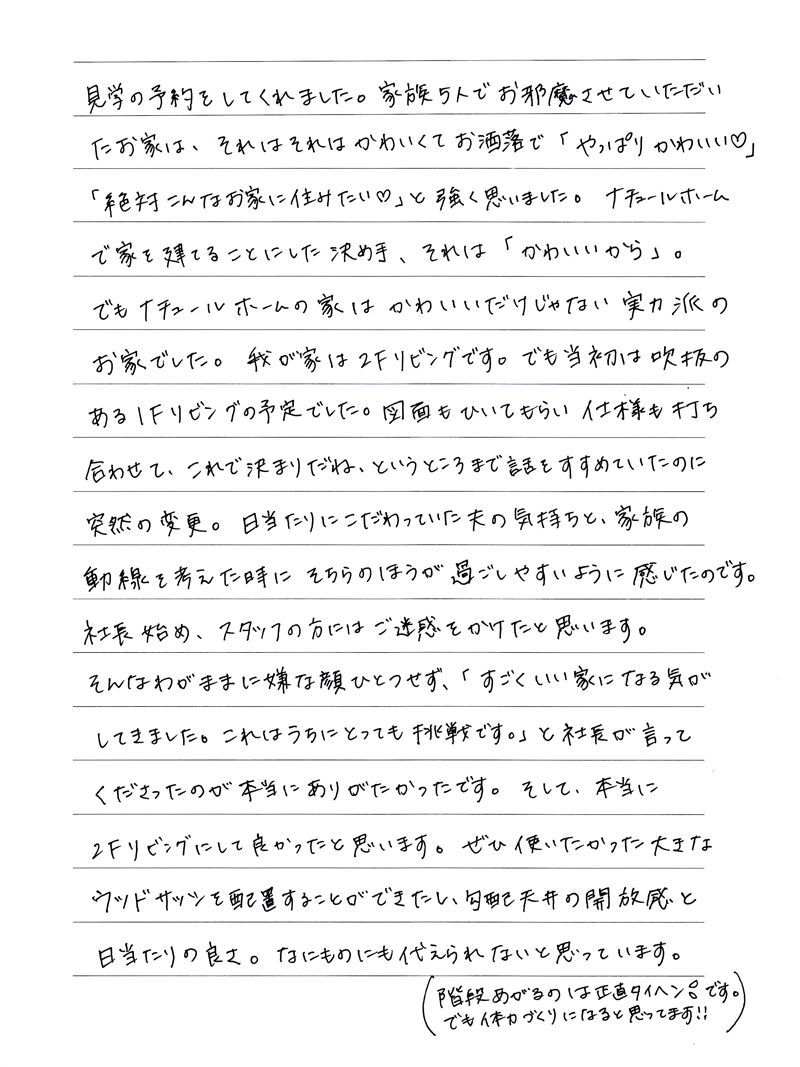 見学の予約をしてくれました。家族5人でお邪魔させていただい
たお家は、それはそれはかわいくてお洒落で「やっぱりかわいい♡」
「絶対こんなお家に住みたい♡」と強く思いました。ナチュールホーム
で家を建てることにした決め手、それは「かわいいから」。
でもナチュールホームの家はかわいいだけじゃない実力派の
お家でした。我が家は2Fリビングです。でも当初は吹抜の
ある1Fリビングの予定でした。図面もひいてもらい仕様も打ち
合わせて、これで決まりだね、というところまで話をすすめていたのに
突然の変更。日当たりにこだわっていた夫の気持ちと、家族の
動線を考えた時にそちらのほうが過ごしやすいように感じたのです。
社長始め、スタッフの方にはご迷惑をかけたと思います。
そんなわがままに嫌な顔ひとつせず、「すごくいい家になる気が
してきました。これはうちにとっても挑戦です。」と社長が言って
くださったのが本当にありがたかったです。そして、本当に
2Fリビングにして良かったと思います。ぜひ使いたかった大きな
ウッドサッシを配置することができたし、勾配天井の開放感と
日当たりの良さ。なにものにも代えられないと思っています。
(階段あがるのは正直タイヘンです。
でも体力づくりになると思ってます!!)